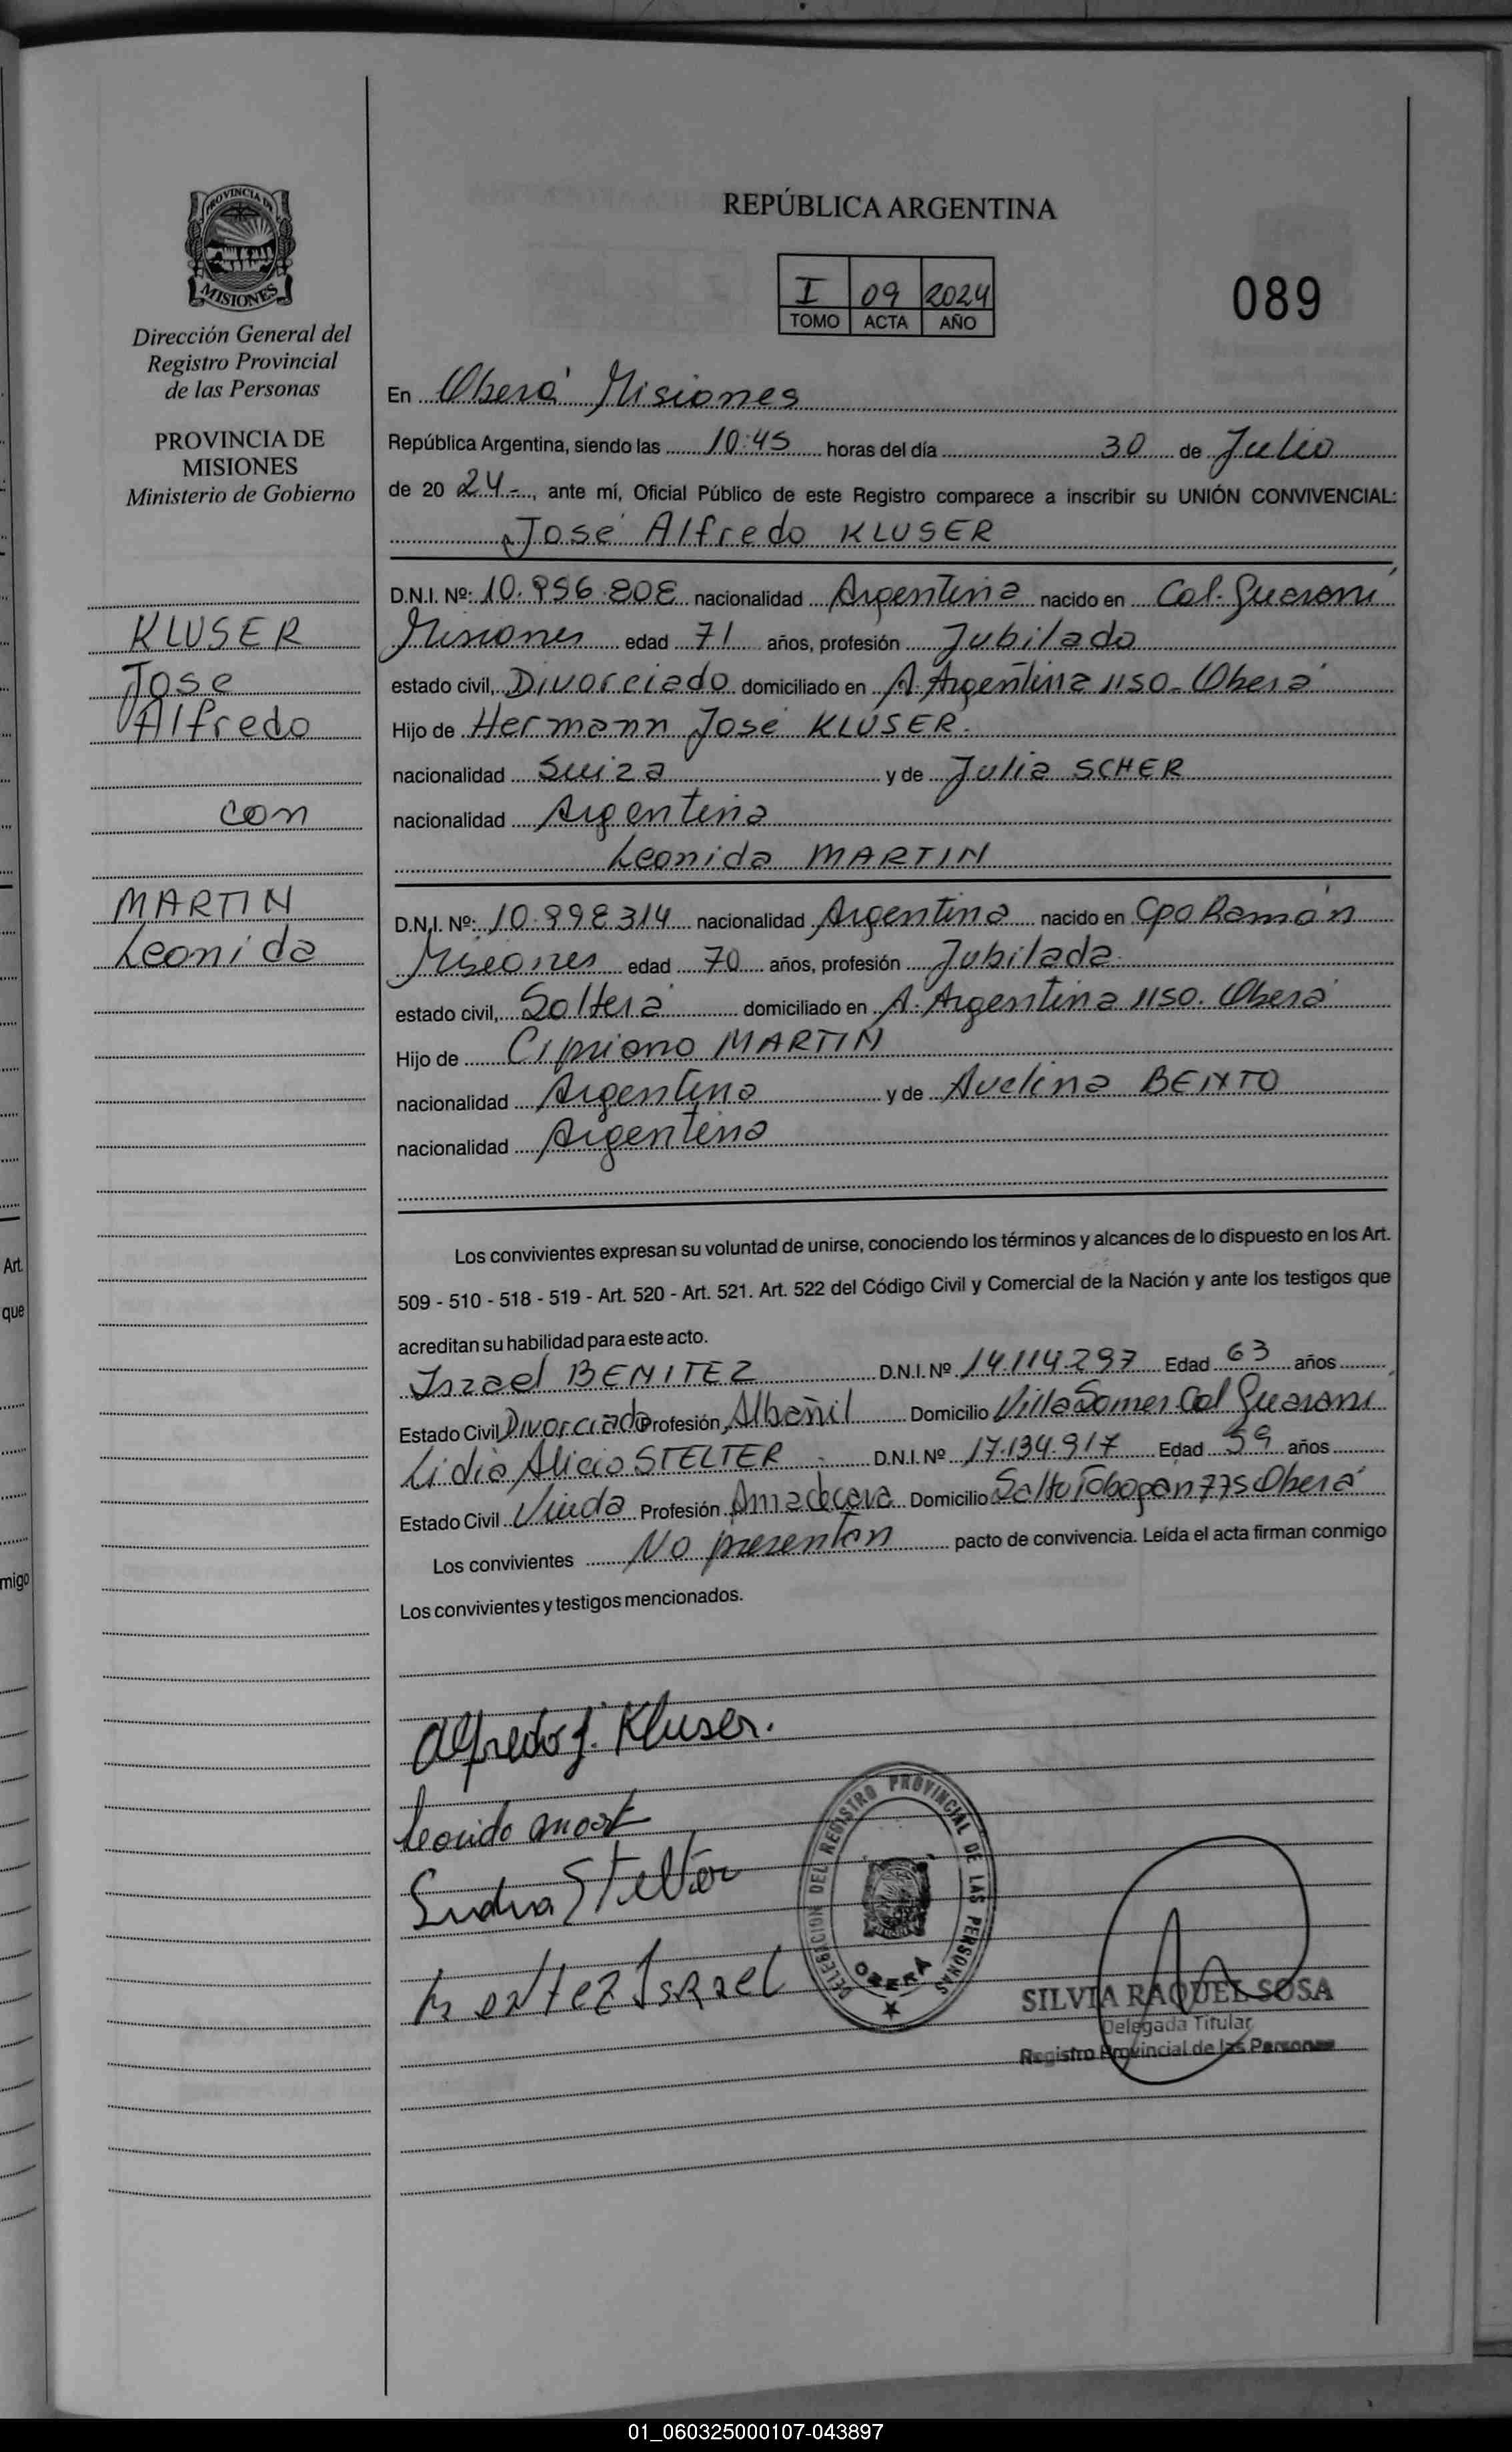 PROVINCIA DE
MISIONES
Dirección General del
Registro Provincial
de las Personas
PROVINCIA DE
MISIONES
Ministerio de Gobierno
KLUSER
Jose
Alfredo
con
MARTIN
Leonida
REPÚBLICA ARGENTINA
I 09 2024
TOMO ACTA AÑO
089
En Oberá Misiones
República Argentina, siendo las 10:45 horas del día 30 de Julio
de 20 24.-, ante mí, Oficial Público de este Registro comparece a inscribir su UNIÓN CONVIVENCIAL:
José Alfredo KLUSER
D.N.I. Nº: nacionalidad Argentina nacido en Col. Guaraní
Misiones edad 71 años, profesión Jubilado
estado civil, Divorciado domiciliado en A. Argentina 1150. Oberá
Hijo de Hermann José KLUSER.
nacionalidad Suiza y de Julia SCHER
nacionalidad Argentina
Leonida MARTIN
D.N.I. Nº: 10.898.314 nacionalidad Argentina nacido en Cpo Ramón
Misiones edad 70 años, profesión Jubilada
estado civil, Soltera domiciliado en A. Argentina 1150. Oberá
Hijo de Cipriano MARTIN
nacionalidad Argentino y de Avelina BENTO
nacionalidad Argentina
Los convivientes expresan su voluntad de unirse, conociendo los términos y alcances de lo dispuesto en los Art.
509 - 510 - 518 - 519 - Art. 520 - Art. 521. Art. 522 del Código Civil y Comercial de la Nación y ante los testigos que
acreditan su habilidad para este acto.
Israel BENITEZ D.N.I. Nº 14.114.297 Edad 63 años
Estado Civil Divorciado Profesión Albañil Domicilio Villa Somer Col Guaraní
Lidia Alicia STELTER D.N.I. Nº 17.134.917 Edad 59 años
Estado Civil Viuda Profesión Ama de casa Domicilio Salto Tobogan 775 Oberá
Los convivientes No presentan pacto de convivencia. Leída el acta firman conmigo
Los convivientes y testigos mencionados.
Alfredo J. Kluser.
Leonida
Stelter
Israel
DELEGACION DEL REGISTRO PROVINCIAL DE LAS PERSONAS
OBERÁ
SILVIA RAQUEL SOSA
Delegada Titular
Registro Provincial de las Personas
Art.
que
migo
01_060325000107-043897